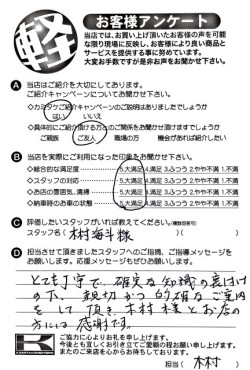 軽
お客様アンケート
当店では、お買い上げ頂いたお客様の声を可能
な限り現場に反映し、お客様により良い商品と
サービスを提供する事に努めています。
大変お手数ですが是非お声をお聞かせ下さい。
A 当店はご紹介を大切にしております。
ご紹介キャンペーンについてお聞かせ下さい。
◇カミタケご紹介キャンペーンのご説明はありましたでしょうか
はい いいえ
◇具体的にご紹介頂ける方とのご関係をお聞かせ頂けますでしょうか
ご親族 ご友人 職場の方 機会があれば紹介したい
B 当店を実際にご利用になった印象をお聞かせ下さい。
◇総合的な満足度 5.大満足 4.満足 3.ふつう 2.やや不満 1.不満
◇スタッフの対応 5.大満足 4.満足 3.ふつう 2.やや不満 1.不満
◇お店の雰囲気、清掃 5.大満足 4.満足 3.ふつう 2.やや不満 1.不満
◇納車時のお車の状態 5.大満足 4.満足 3.ふつう 2.やや不満 1.不満
C 評価したいスタッフがいれば教えてください。(複数回答可)
スタッフ名( 木村 様 )( )
D 担当させて頂きましたスタッフへのご指摘、ご指導メッセージを
お願いします。応援メッセージもぜひお願いします。
とても丁寧で、確実な知識の裏付け
の下、親切かつ的確なご案内
をして頂き、木村様とお店の
方には感謝です。
ご協力に心よりお礼を申し上げます。
今後とも宜しくお引き立てご愛顧の程お願い申し上げます。
またのご来店を心からお待ちしております。
担当( 木村 )